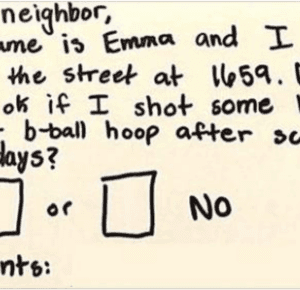 neighbor,
is Emma and I
the street at 1659.
ok if I shot some
b-ball hoop after
days?
or NO